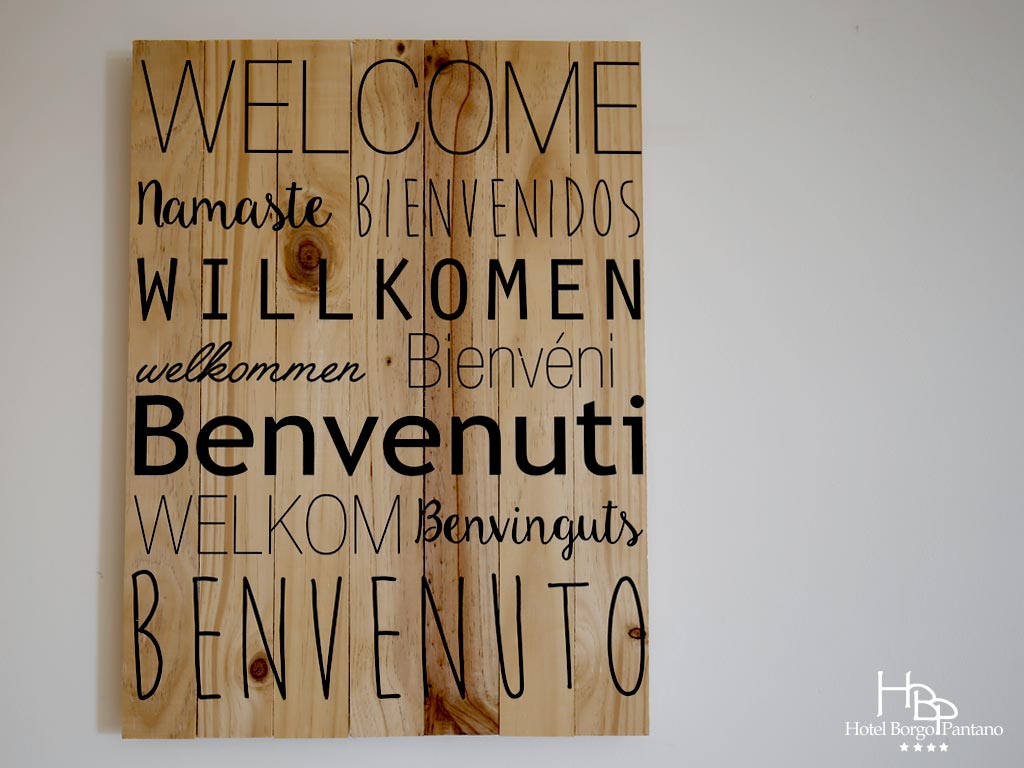 WELCOME
Namaste BIENVENIDOS
WILLKOMEN
welkommen Bienvéni
Benvenuti
WELKOM Benvinguts
BENVENUTO
HBP
Hotel Borgo Pantano